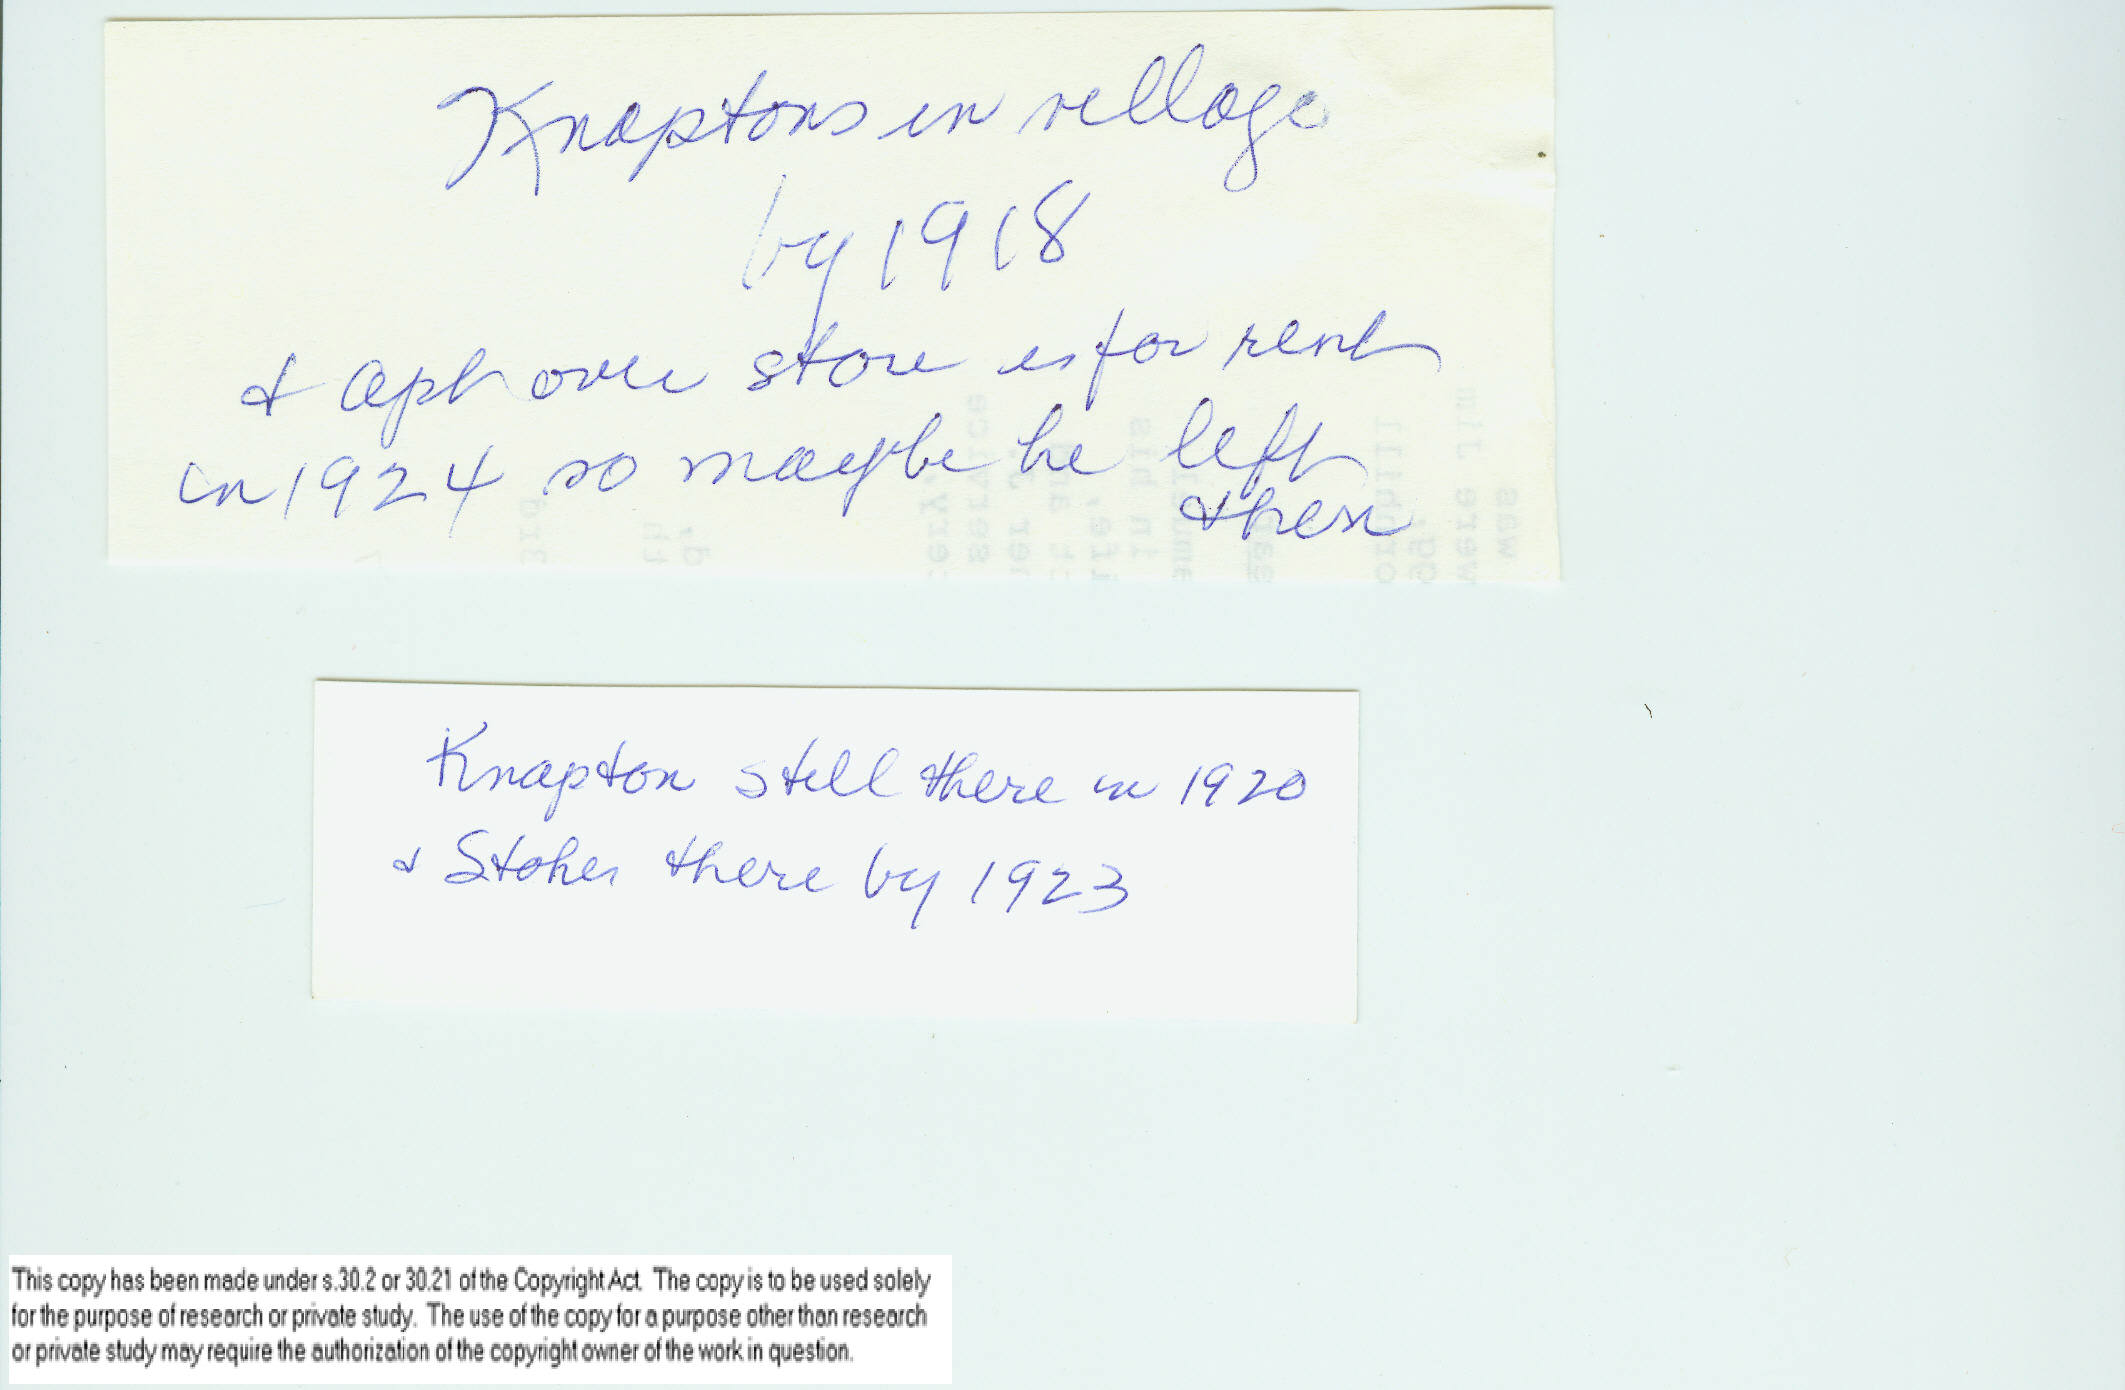 Knaptons in village
by 1918
& apt over store is for rent
in 1924 so maybe he left
then
Knapton still there in 1920
& Stokes there by 1923
This copy has been made under s.30.2 or 30.21 of the Copyright Act. The copy is to be used solely
for the purpose of research or private study. The use of the copy for a purpose other than research
or private study may require the authorization of the copyright owner of the work in question.